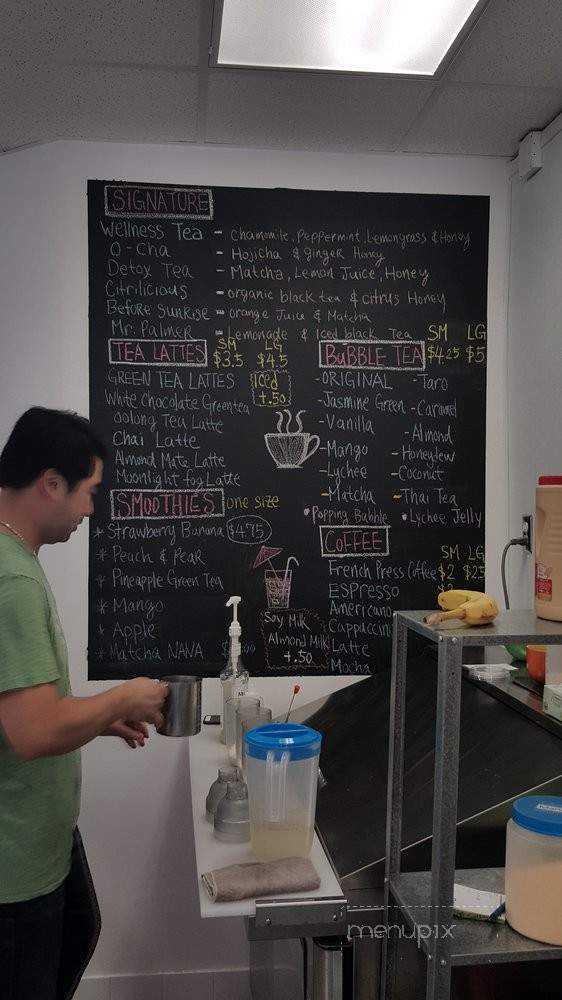 SIGNATURE
Wellness Tea - Chamomile, Peppermint, Lemongrass & Honey
O-Cha - Hojicha & ginger Honey
Detox Tea - Matcha, Lemon Juice, Honey
Citrilicious - organic black tea & citrus Honey
Before Sunrise - orange Juice & Matcha
Mr. Palmer - Lemonade & Iced black Tea
TEA LATTES SM $3.5 LG $4.5
GREEN TEA LATTES Iced +.50
White Chocolate Greentea
Oolong Tea Latte
Chai Latte
Almond Mate Latte
Moonlight Fog Latte
SMOOTHIES one size
* Strawberry Banana $4.75
* Peach & Pear
* Pineapple Green Tea
* Mango
* Apple
* Matcha NANA
Soy Milk
Almond Milk
+.50
BuBBLE TEA SM $4.25 LG $5
-ORIGINAL -Taro
-Jasmine Green -Caramel
-Vanilla -Almond
-Mango -Honeydew
-Lychee -Coconut
-Matcha -Thai Tea
•Popping Bubble •Lychee Jelly
CoFFEE SM LG
French Press Coffee $2 $2.5
ESPRESSO
Americano
Cappuccino
Latte
Mocha
menupix